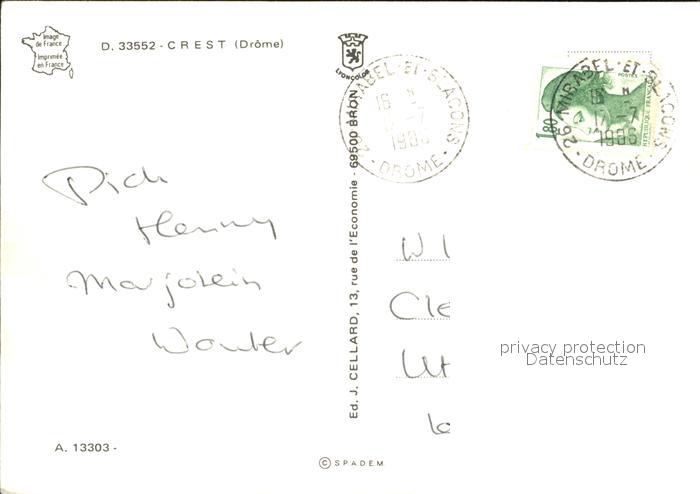 Image
de France
Imprimée
en France
D. 33552 - CREST (Drôme)
LYONCOLOR
MIRABEL-ET-BLACONS
16 H
-7
1986
DROME
26 MIRABEL-ET-BLACONS
17-7
1986
DROME
1,80
POSTES
REPUBLIQUE FRANÇAISE
Dick
Henny
Marjolein
Wouter
Ed. J. CELLARD, 13, rue de l'Economie - 69500 BRON
W
Cle
Ut
privacy protection
Datenschutz
A. 13303 -
© SPADEM